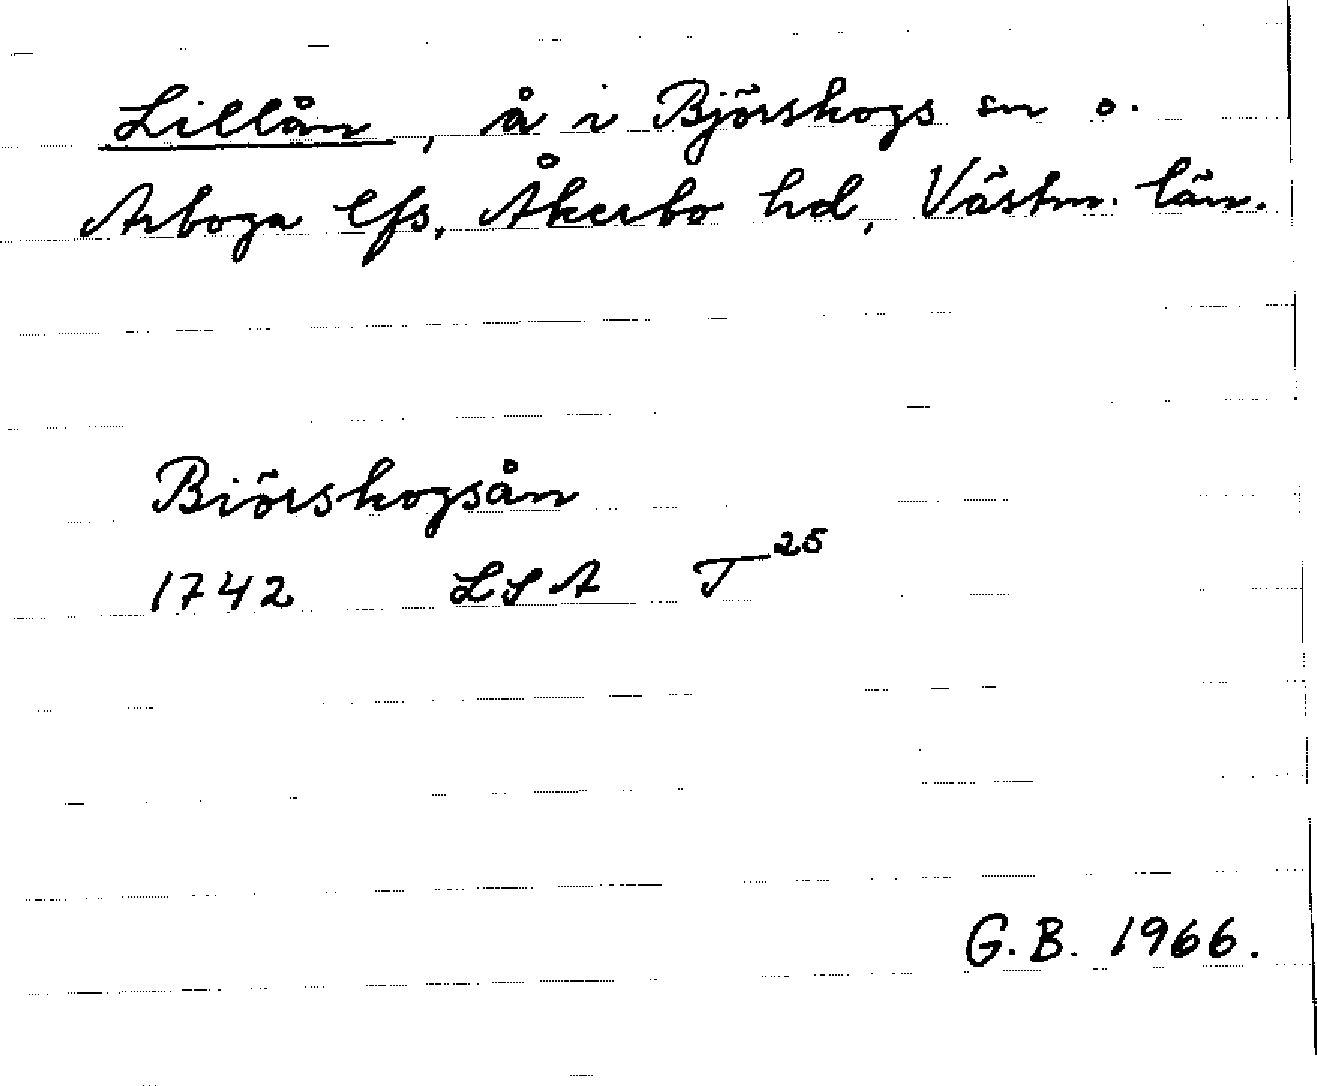 Lillån, å i Björskogs sn o.
Arboga lfs, Åkerbo hd, Västm. län.
Biörskogsån
1742 LSA T²⁵
G.B. 1966.